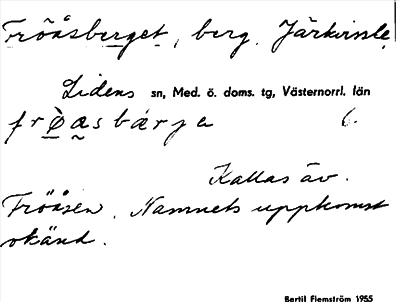 Fröåsberget, berg. Järkvissle,
Lidens sn, Med. ö. doms. tg, Västernorrl. län
frö̀åsbærja 6.
Kallas äv.
Fröåsen. Namnets uppkomst
okänd.
Bertil Flemström 1955